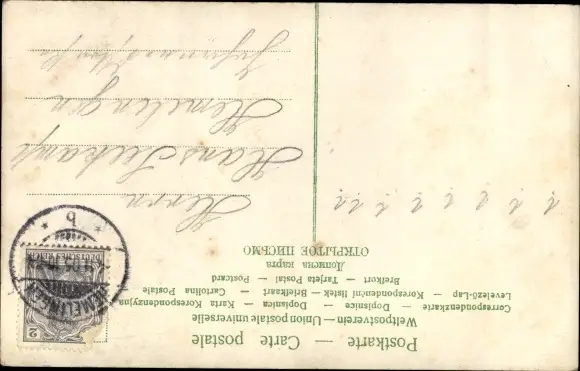 Postkarte — Carte postale
Weltpostverein — Union postale universelle
Correspondenzkarte — Dopisnice — Dopisnica — Karta Korespondencyjna
Levelező-Lap — Korespondenční lístek — Briefkaart — Cartolina Postale
Brefkort — Tarjeta Postal — Postcard
Дописна карта
ОТКРЫТОЕ ПИСЬМО
Herrn
Hans Seekamp
Hemelingen
HEMELINGEN
b
DEUTSCHES REICH
2